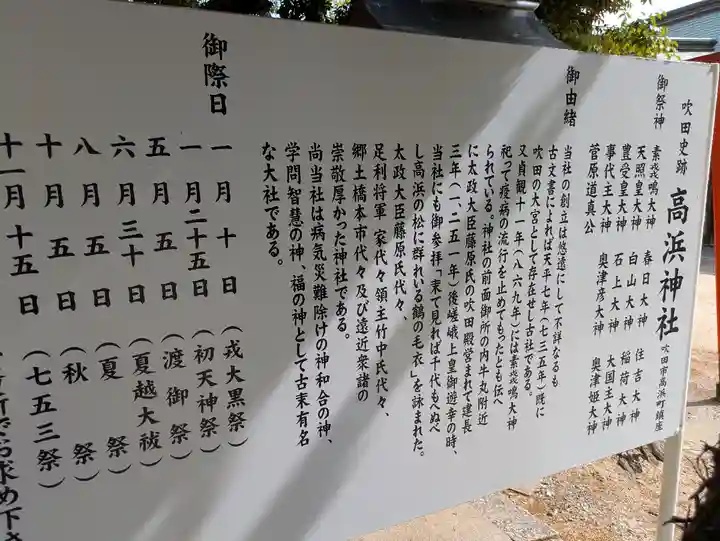 吹田史跡 高浜神社 吹田市高浜町鎮座
御祭神
素戔嗚大神 春日大神 住吉大神
天照皇大神 白山大神 稲荷大神
豊受皇大神 石上大神 大国主大神
事代主大神 奥津彦大神 奥津姫大神
菅原道真公
御由緒
当社の創立は悠遠にして不詳なるも
古文書によれば天平七年(七三五年)既に
吹田の大宮として存在せし古社である。
又貞観十一年(八六九年)には素戔嗚大神
祀って疫病の流行を止めてもったとも伝へ
られている。神社の前面御所の内牛丸附近
に太政大臣藤原氏の吹田殿営まれて建長
三年(一、二五一年)後嵯峨上皇御遊幸の時、
当社にも御参拝「来て見れば千代もへぬべ
し高浜の松に群れいる鶴の毛衣」を詠まれた。
太政大臣藤原氏代々、
足利将軍 家代々領主竹中氏代々、
郷土橋本市代々及び遠近衆諸の
崇敬厚かった神社である。
尚当社は病気災難除けの神和合の神、
学問智慧の神、福の神として古来有名
な大社である。
御際日
一月十日 (戎大黒祭)
一月二十五日 (初天神祭)
五月五日 (渡御祭)
六月三十日 (夏越大祓)
八月五日 (夏祭)
十月五日 (秋祭)
十一月十五日 (七五三祭)
所でお求め下さ